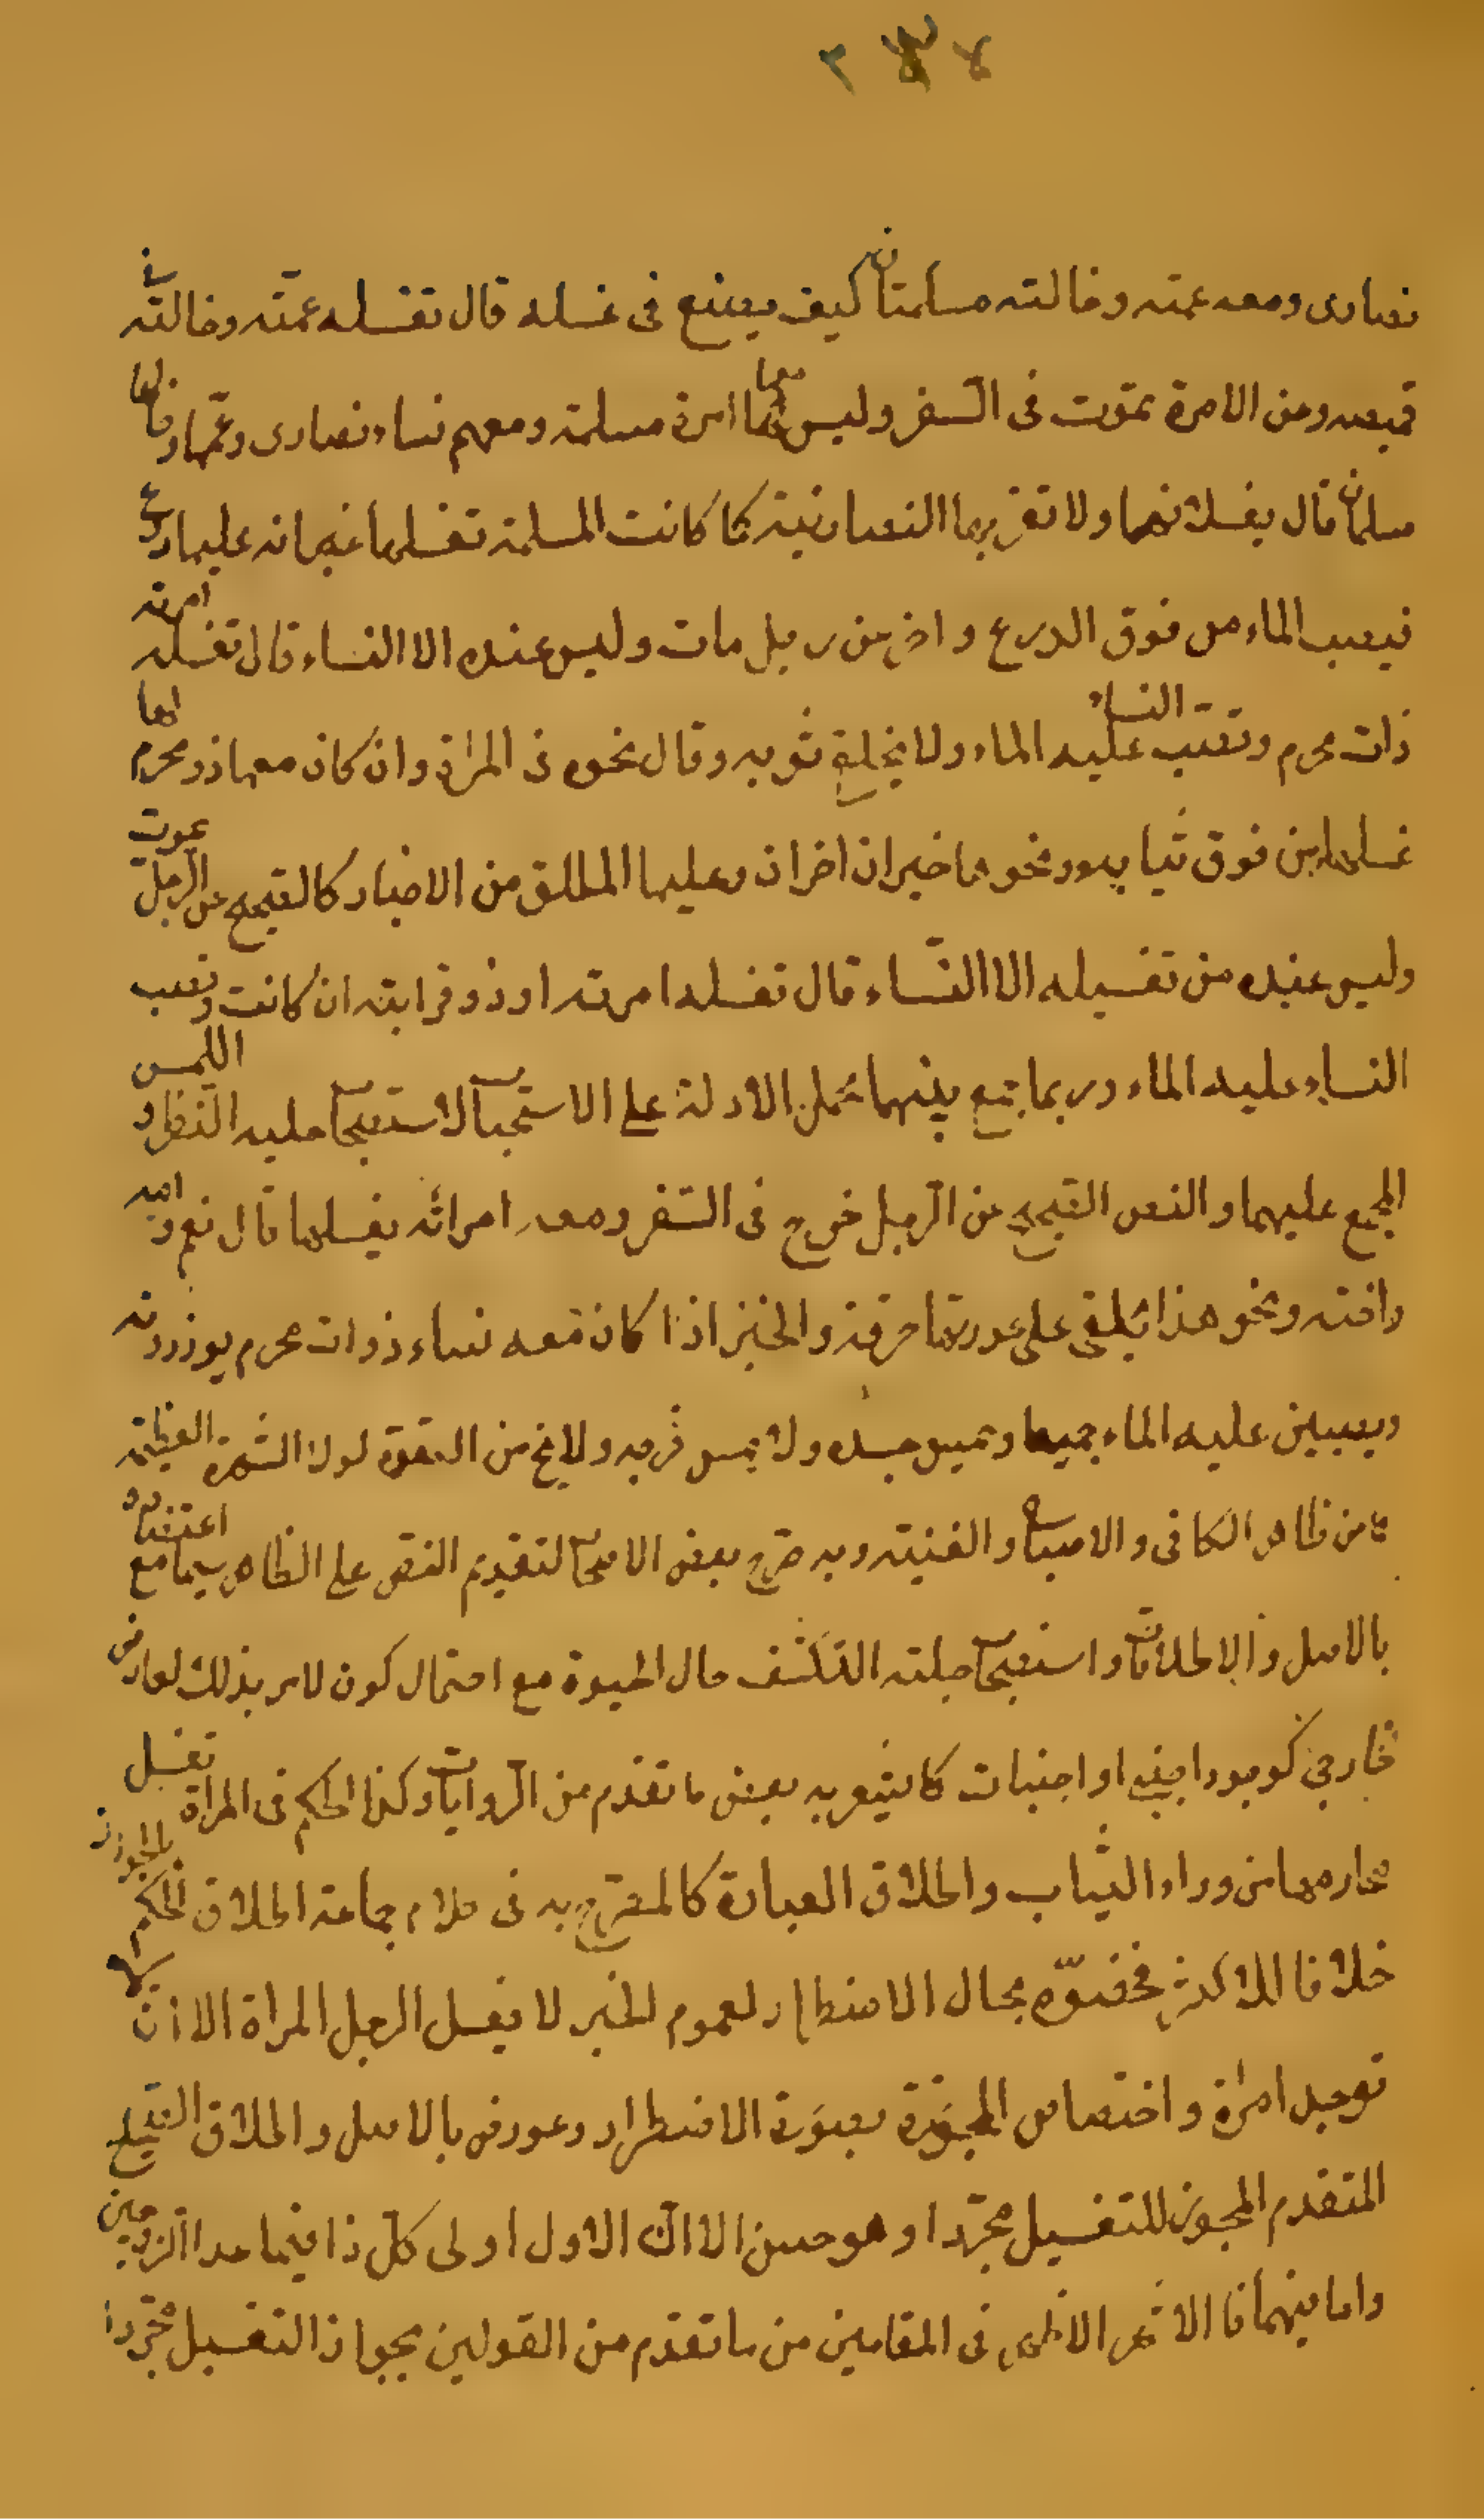 نصارى ومعه عمته وخالته مسلمتان كيف يصنع فى غسله قال تغسله عمته وخالته فى
قميصه وعن الامرة تموت فى السفر وليس معها امرة مسلمة ومعهم نساء نصارى وعمها وخالها
مسلمان قال يغسلانها ولا تقربها النصرانية كما كانت المسلمة تغسلها غير انه عليها درع
فيصب الماء من فوق الدرع واخر عن رجل مات وليس عنده الا النساء قال تغسله امرته
ذات محرم وتصب النساء عليه الماء ولا يخلع ثوبه وقال نحوه فى المراة وان كان معها ذو محرم لها
غسلها من فوق ثيابها ونحوهما خبران اخران وعليها المطلق من الاخبار كالصحيح عن الرجل يموت
وليس عنده من تغسيله الا النساء قال تغسله امرته او ذو قرابته ان كانت وتصب
النساء عليه الماء وربما جمع بينهما بحمل الادلة على الاستحباب لاستصحاب حلية النظر واللمس
المجمع عليهما والنص الصحيح عن الرجل خرج فى السفر ومعه امرأته يغسلها قال نعم وامه
واخته ونحو هذا يلقى على عورتها خرقة والخبر اذا كان معه نساء ذوات محرم يوزرنه
ويصببن عليه الماء جميعا ويمسن جسده ولا يمسن فرجه ولا يخ من القوة لولا الشهرة العظيمة
مع من ظاهر الكافى والاصباح والغنية وبه صرح بعض الاصحاب لتقديم النص على الظاهر سيما مع اعتضاده
بالاصل والاطلاقات واستصحاب حلية التكشف حال الحيوة مع احتمال كون الامر بذلك لعارض
خارجى كوجود اجنبى او اجنبيات كما يشعر به بعض ما تقدم من الروايات وكذا الحكم فى المراة تغسل
محارمها من وراء الثياب واطلاق العبارة كالمصرح به فى كلام جماعة اطلاق الحكم بالجواز
خلافا للاكثر فخصوه بحال الاضطرار لعموم الخبر لا يغسل الرجل المراة الا ان لا
توجد امراة واختصاص المجوزة بصورة الاضطرار وعورض بالاصل واطلاق الصحيح
المتقدم المجوز للتغسيل مجردا وهو حسن الا ان الاول اولى كل ذا فيما عدا الزوجين
واما فيهما فا الاشهر الاظهر فى المقامين من ما تقدم من القولين بجواز التغسيل مجردا